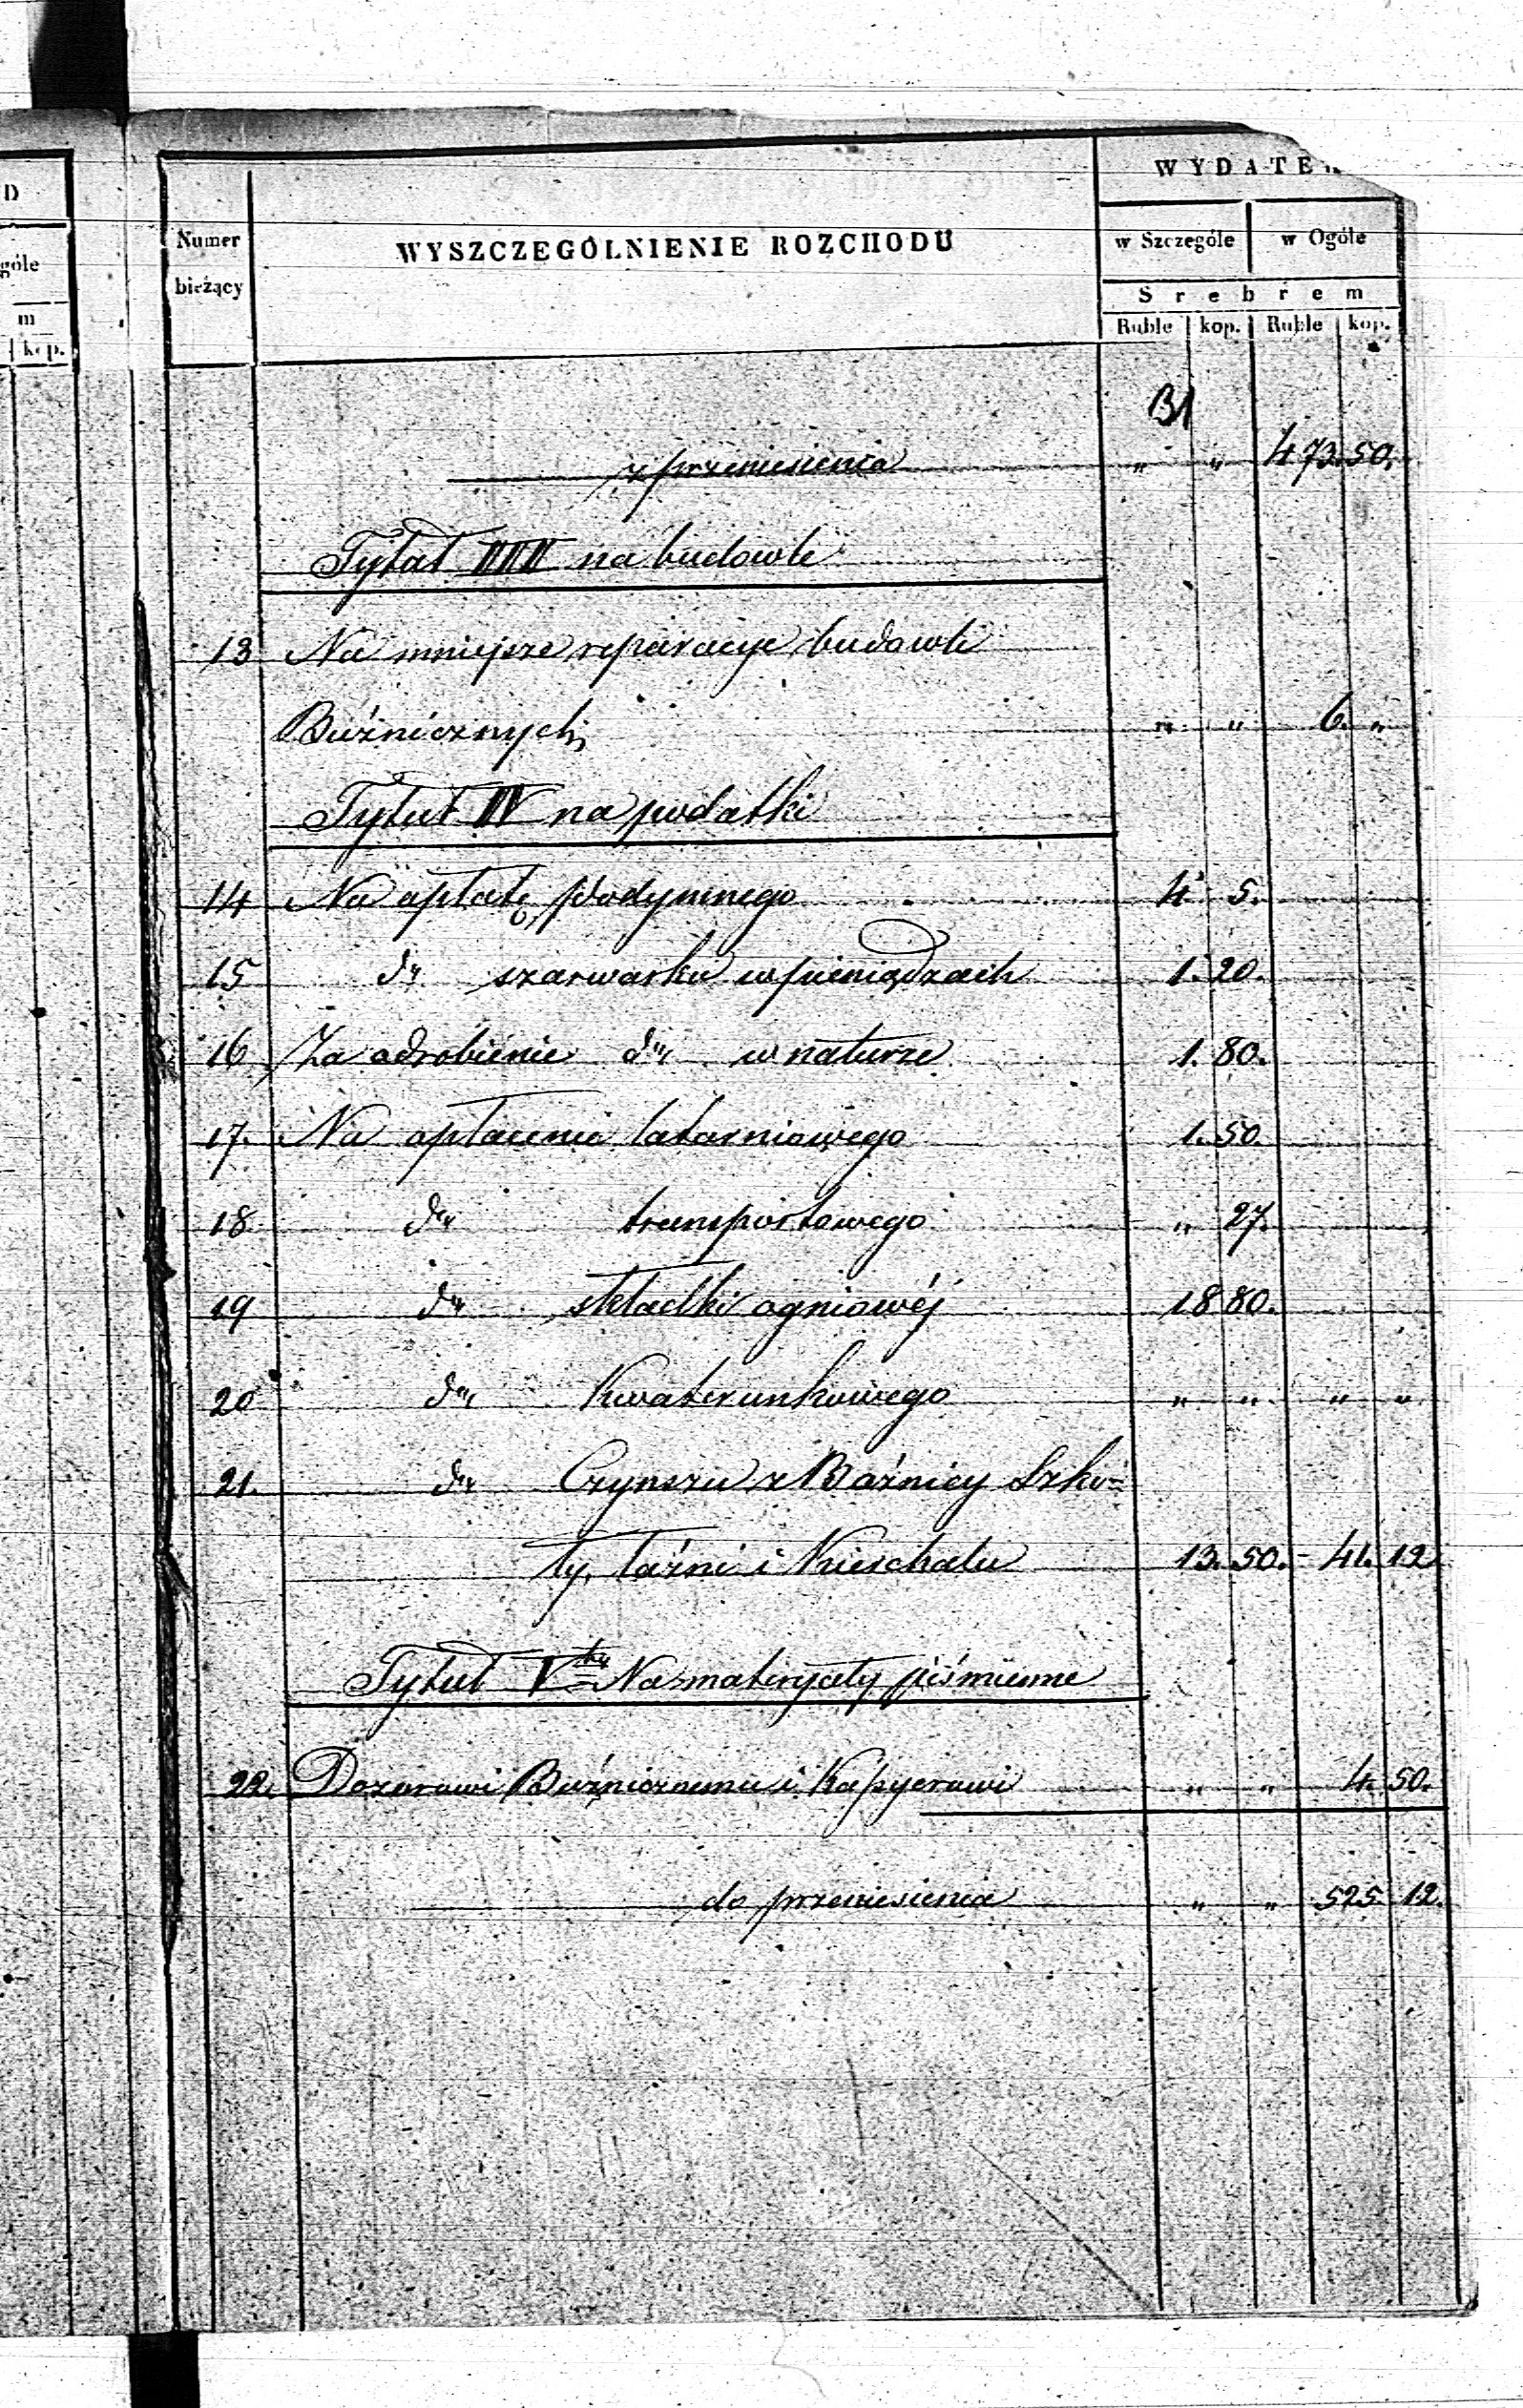 D
góle
m
kop.
WYDATE
Numer bieżący
WYSZCZEGÓLNIENIE ROZCHODU
w Szczególe w Ogóle
Srebrem
Ruble kop. Ruble kop.
z przeniesienia " " 473. 50.
Tytuł III na budowle
13 Na mniejsze reparacye budowli
Bóżnicznych " " 6. "
Tytuł IV na podatki
14 Na opłatę podymnego 4. 5.
15 dto szarwarku w pieniądzach 1. 20.
16 Za odrobienie dto w naturze 1. 80.
17. Na opłacenie latarniowego 1. 50.
18 dto transportowego " 27.
19 dto składki ogniowéj 18 80.
20 dto Kwaterunkowego " " " "
21. dto Czynszu z Bóżnicy Szko=
ły, łaźni i Kierchału 13. 50. - 41. 12
Tytuł Vty Na materyały piśmienne
22. Dozorowi Bóżnicznemu i Kassyerowi " " 4. 50.
do przeniesienia " " 525. 12.